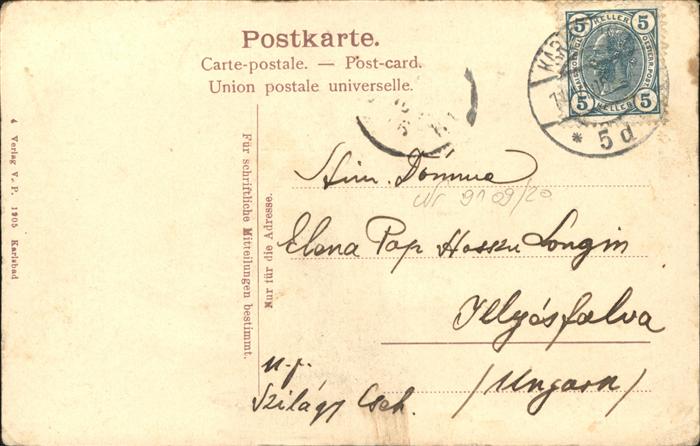 Postkarte.
Carte-postale. — Post-card.
Union postale universelle.
5 HELLER 5
5 HELLER 5
* 5 d
Stim. Domna
Nr 9109/20
Elena Pop Hossu Longin
Illyésfalva
u. p.
Szilágy Cseh.
/Ungarn/
Für schriftliche Mitteilungen bestimmt.
Nur für die Adresse.
4 Verlag V. P. 1905 Karlsbad